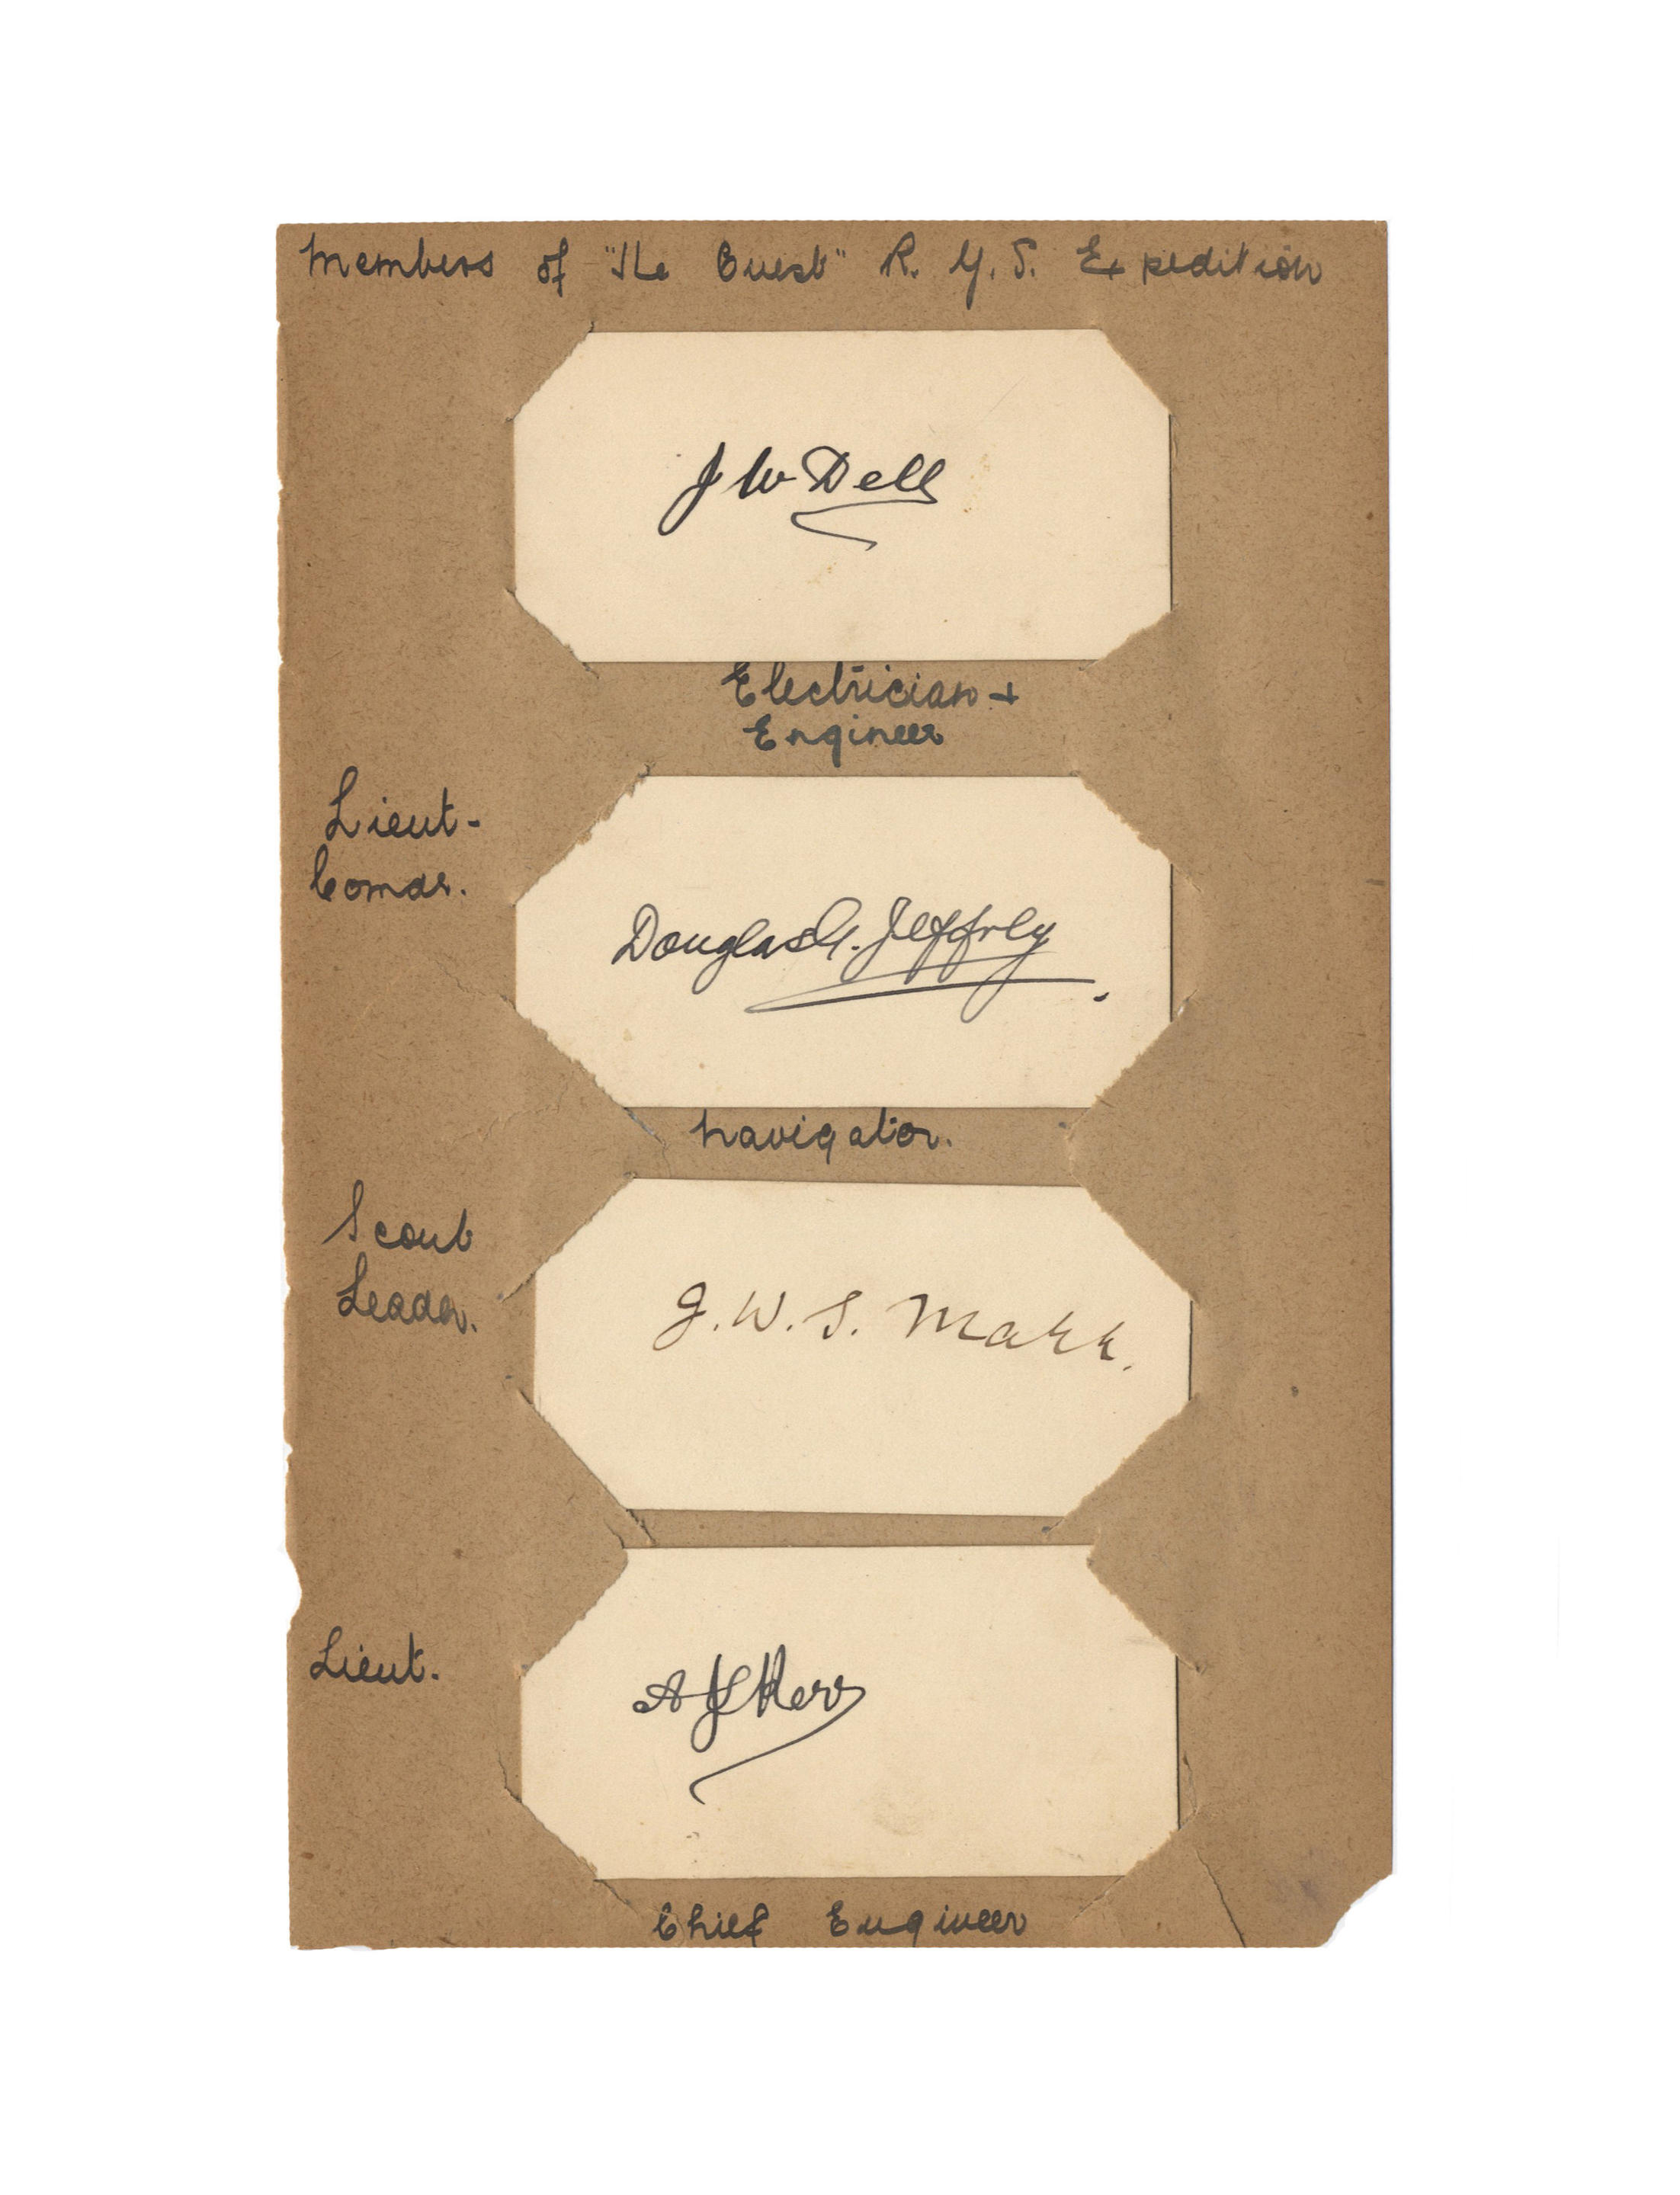 Members of "The Quest" R. Y. S. Expedition
J W Dell
Electrician +
Engineer
Lieut-
Comdr.
Douglas G. Jeffrey
Navigator.
Scout
Leader.
J. W. S. Marr.
Lieut.
A J Kerr
Chief Engineer